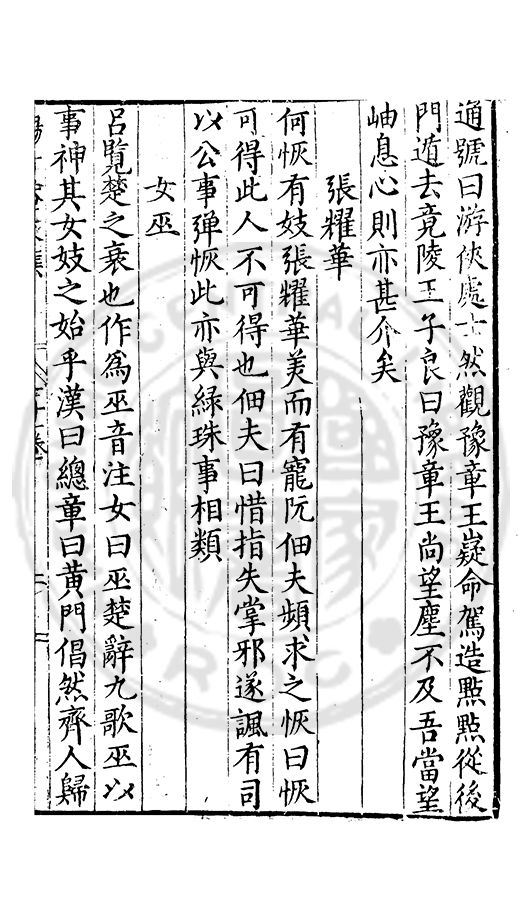 通號曰游俠處士然觀豫章王嶷命駕造點點從後
門遁去竟陵王子良曰豫章王尚望塵不及吾當望
岫息心則亦甚介矣
張耀華
何恢有妓張耀華美而有寵阮佃夫頻求之恢曰恢
可得此人不可得也佃夫曰惜指失掌邪遂諷有司
以公事彈恢此亦與緑珠事相類
女巫
呂覧楚之衰也作爲巫音注女曰巫楚辭九歌巫以
事神其女妓之始乎漢曰總章曰黃門倡然齊人歸